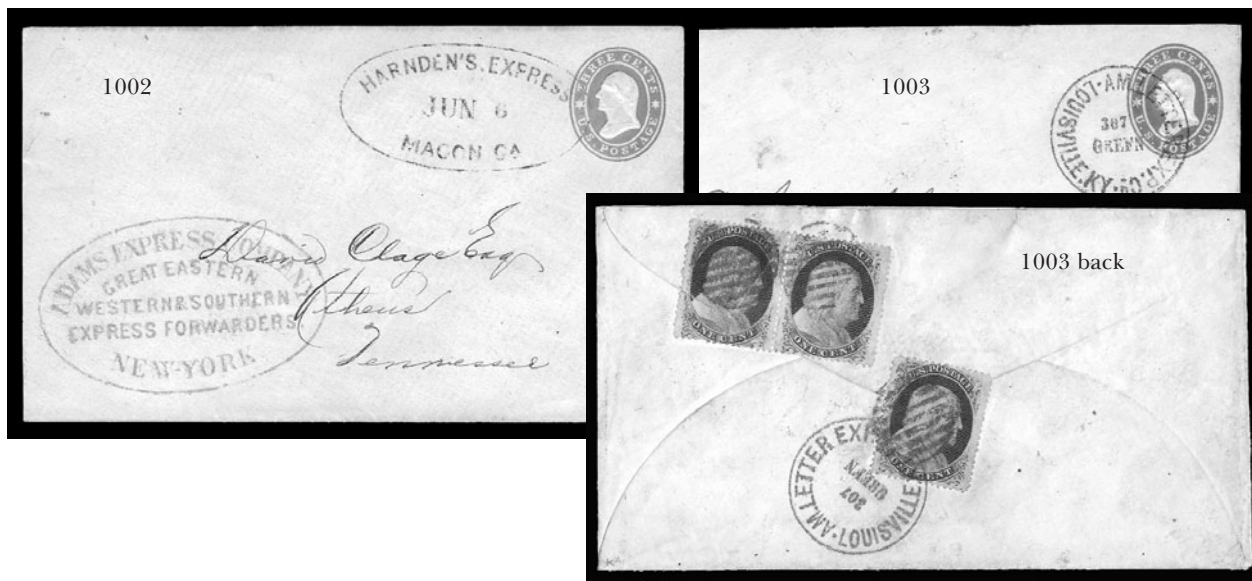 1002
HARNDEN'S. EXPRESS
JUN 6
MACON GA
THREE CENTS
U.S. POSTAGE
ADAMS EXPRESS COMPANY
GREAT EASTERN
WESTERN & SOUTHERN
EXPRESS FORWARDERS
NEW-YORK
Esq
Athens
Tennessee
1003
THREE CENTS
U.S. POSTAGE
AM LETTER EXP. Co.
307
GREEN
LOUISVILLE KY
1003 back
U.S. POSTAGE
ONE CENT
U.S. POSTAGE
ONE CENT
U.S. POSTAGE
ONE CENT
AM. LETTER EXP
307
GREEN
LOUISVILLE